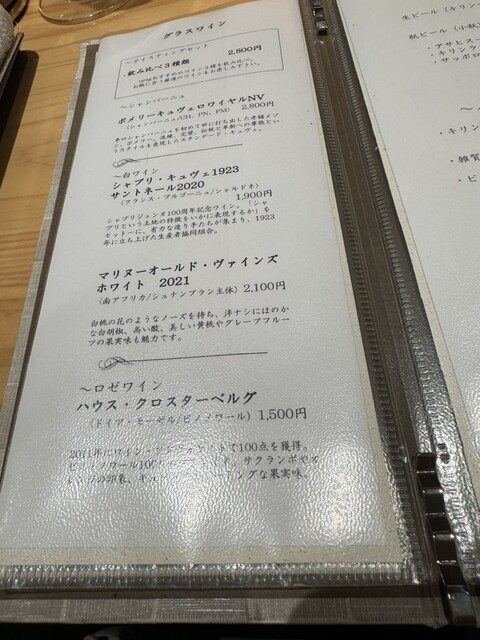 グラスワイン
～テイスティングセット
飲み比べ3種類 2,800円
おすすめのワイン3種を飲み比べ。
～シャンパーニュ
ポメリーキュヴェロワイヤルNV
(シャンパーニュ/CH, PN, PM) 2,800円
辛口シャンパーニュを初めて世に打ち出した老舗メゾ
ン、ポメリー。
スタイルを表現したスタンダード・キュヴェ。
～白ワイン
シャブリ・キュヴェ1923
サントネール2020
(フランス・ブルゴーニュ/シャルドネ) 1,900円
シャブリジェンヌ100周年記念ワイン。「シャ
ブリという土地の特徴をいかに表現するか」を
モットーに、有力な造り手たちが集まり、1923
年に立ち上げた生産者協同組合。
マリヌーオールド・ヴァインズ
ホワイト 2021
(南アフリカ/シュナンブラン主体) 2,100円
白桃の花のようなノーズを持ち、洋ナシにほのか
な白胡椒、高い酸、美しい黄桃やグレープフルー
ツの果実味も魅力です。
～ロゼワイン
ハウス・クロスターベルグ
(ドイツ・モーゼル/ピノノワール) 1,500円
2011年にワイン・で100点を獲得。
ピノノワール100 サクランボや
な果実味。
生ビール (キリン
瓶ビール (小瓶)
・アサヒスー
・キリン
・サッポロ
・キリン
・雑賀
・ビ